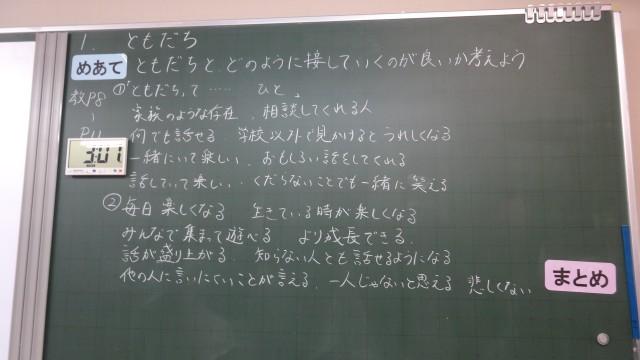 1. ともだち
めあて ともだちと、どのように接していくのが良いか考えよう
教P8 ①ともだちって…… ひと。
家族のような存在、相談してくれる人
P11 何でも話せる 学校以外で見かけるとうれしくなる
3:01 一緒にいて楽しい、おもしろい話をしてくれる
話していて楽しい、くだらないことでも一緒に笑える
②毎日楽しくなる 生きている時が楽しくなる
みんなで集まって遊べる より成長できる
話が盛り上がる 知らない人とも話せるようになる
他の人に言いにくいことが言える、一人じゃないと思える 悲しくない
まとめ